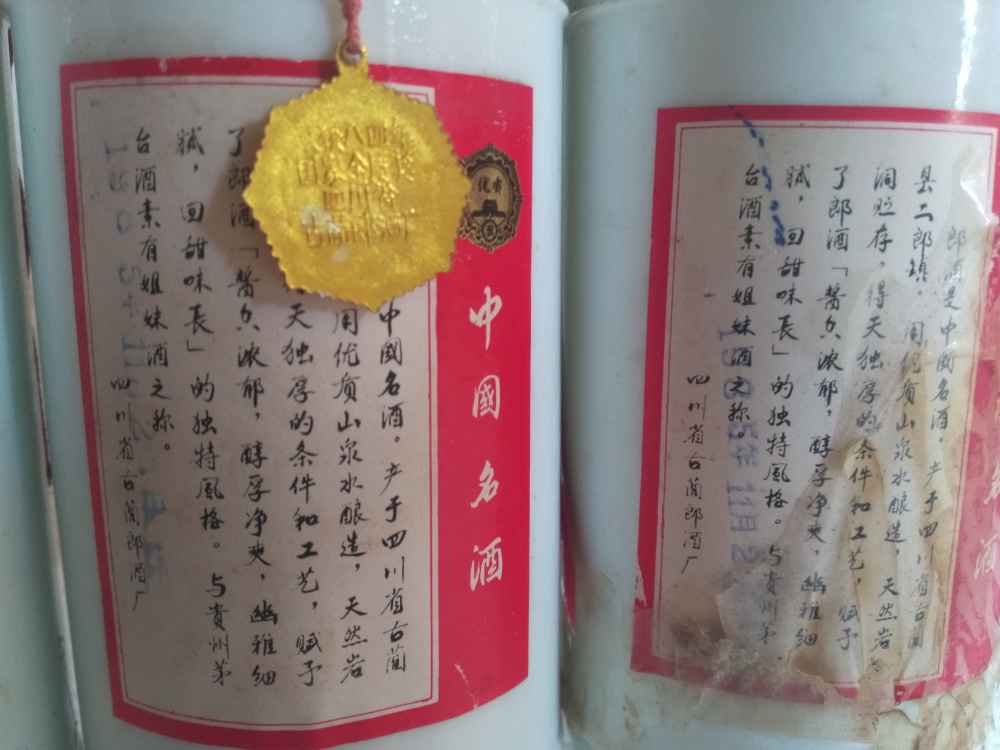 八四年
国家金质奖
四川省
古蔺郎酒厂
优质
中國名酒
中國名酒。产于四川省古蔺
用优质山泉水酿造，天然岩
天独厚的条件和工艺，赋予
了郎酒「醬香浓郁，醇厚净爽，幽雅细
腻，回甜味長」的独特風格。与貴州茅
台酒素有姐妹酒之称。
四川省古蔺郎酒厂
名酒
郎酒是中國名酒。产于四川省古蔺
县二郎镇，用优质山泉水酿造，天然岩
洞贮存，得天独厚的条件和工艺，赋予
了郎酒「醬香浓郁，醇厚净爽，幽雅细
腻，回甜味長」的独特風格。与貴州茅
台酒素有姐妹酒之称。
四川省古蔺郎酒厂
1985年11月2